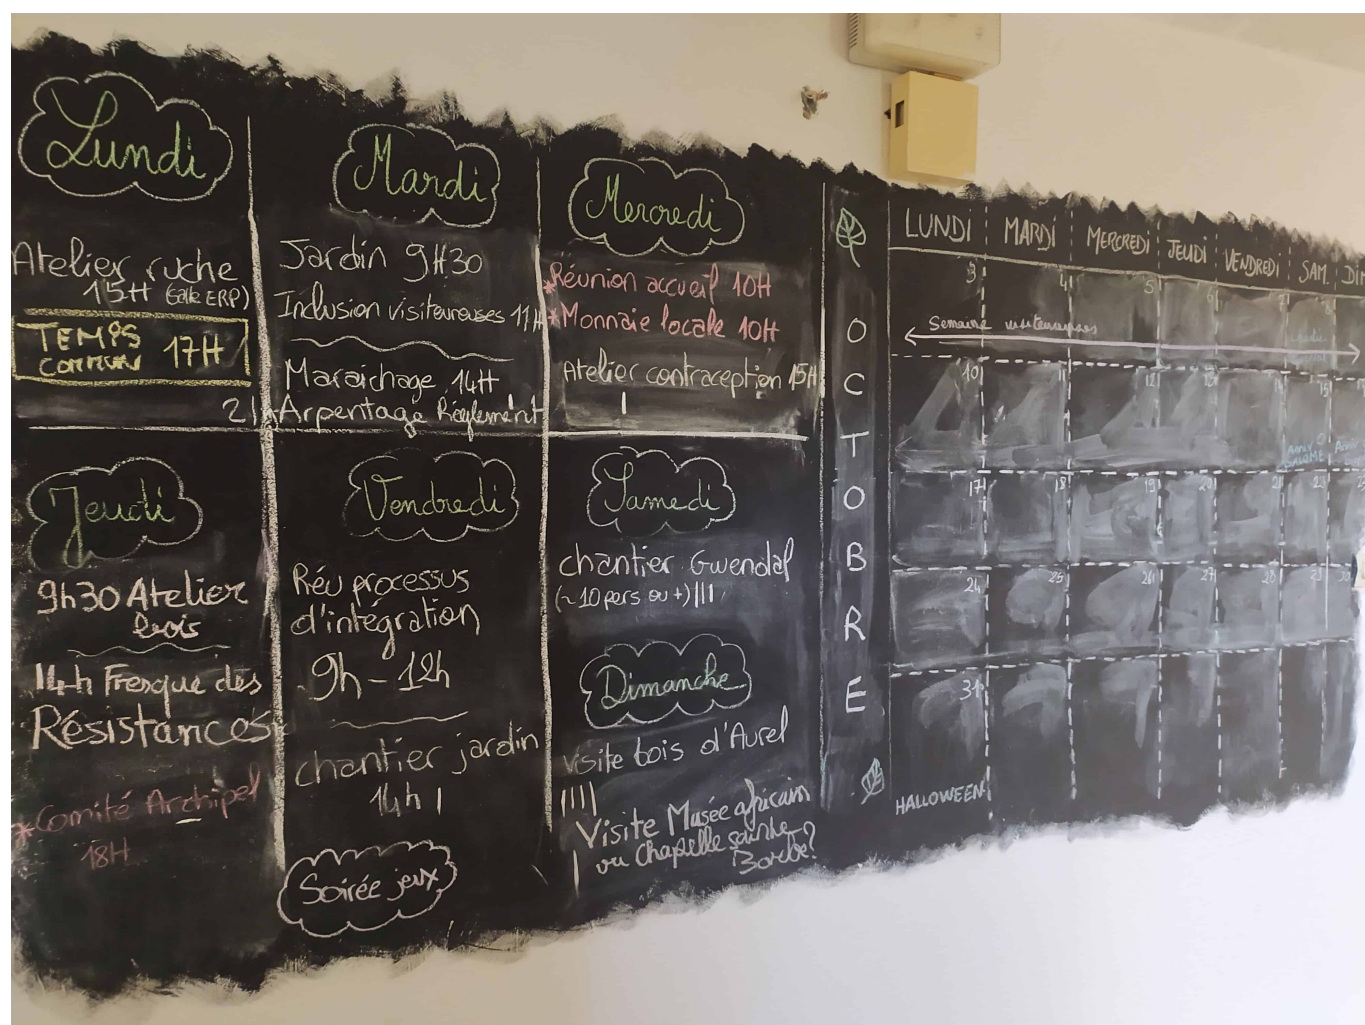 Lundi
Atelier ruche
15H (salle ERP)
TEMPS
commun 17H
Mardi
Jardin 9H30
Inclusion visiteureuses 11H
Maraichage 14H
21H Arpentage Règlement
Mercredi
*Réunion accueil 10H
*Monnaie locale 10H
Atelier contraception 15H
|
Jeudi
9h30 Atelier
bois
14h Fresque des
Résistances
*Comité Archipel
18H
Vendredi
Réu processus
d'intégration
9h - 12h
chantier jardin
14h |
Soirée jeux
Samedi
chantier Gwendal
(~10 pers ou +) |||
Dimanche
Visite bois d'Aurel
||||
Visite Musée africain
ou Chapelle sainte
| Barbe?
OCTOBRE
LUNDI MARDI MERCREDI JEUDI VENDREDI SAM. DI
3 4 5 6 7 8
Semaine visiteureuses
10 11 12 13 14 15
17 18 19 20 21 22
24 25 26 27 28 29
31
HALLOWEEN